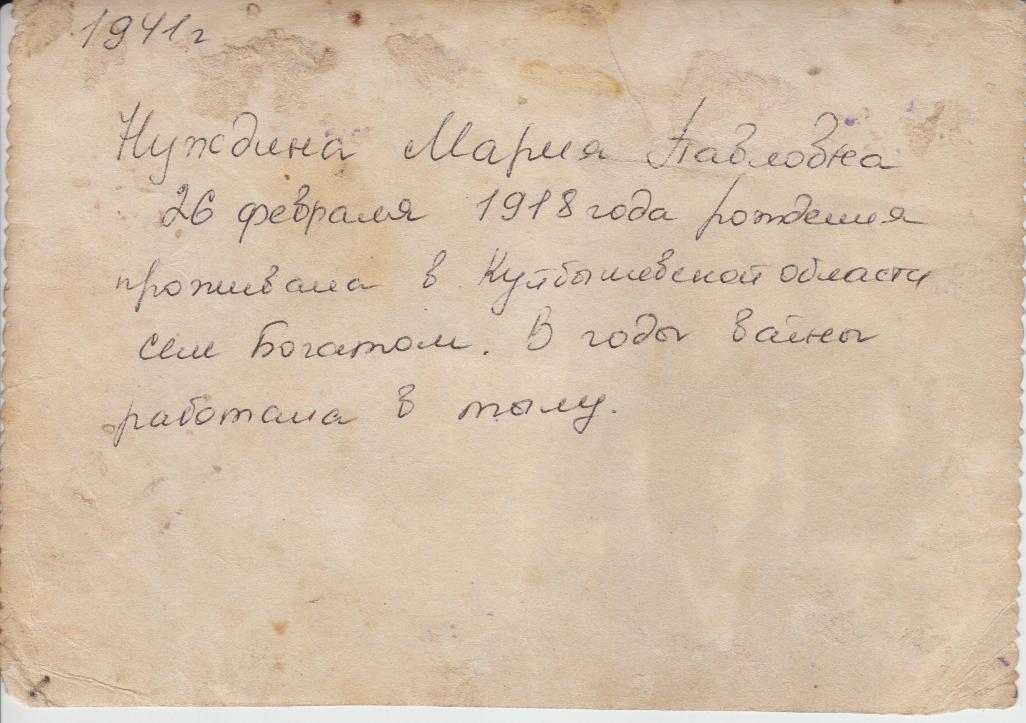 1941г
Нуждина Мария Павловна
26 февраля 1918 года рождения
проживала в Куйбышевской области
селе Богатом. В годы вайны
работала в тылу.